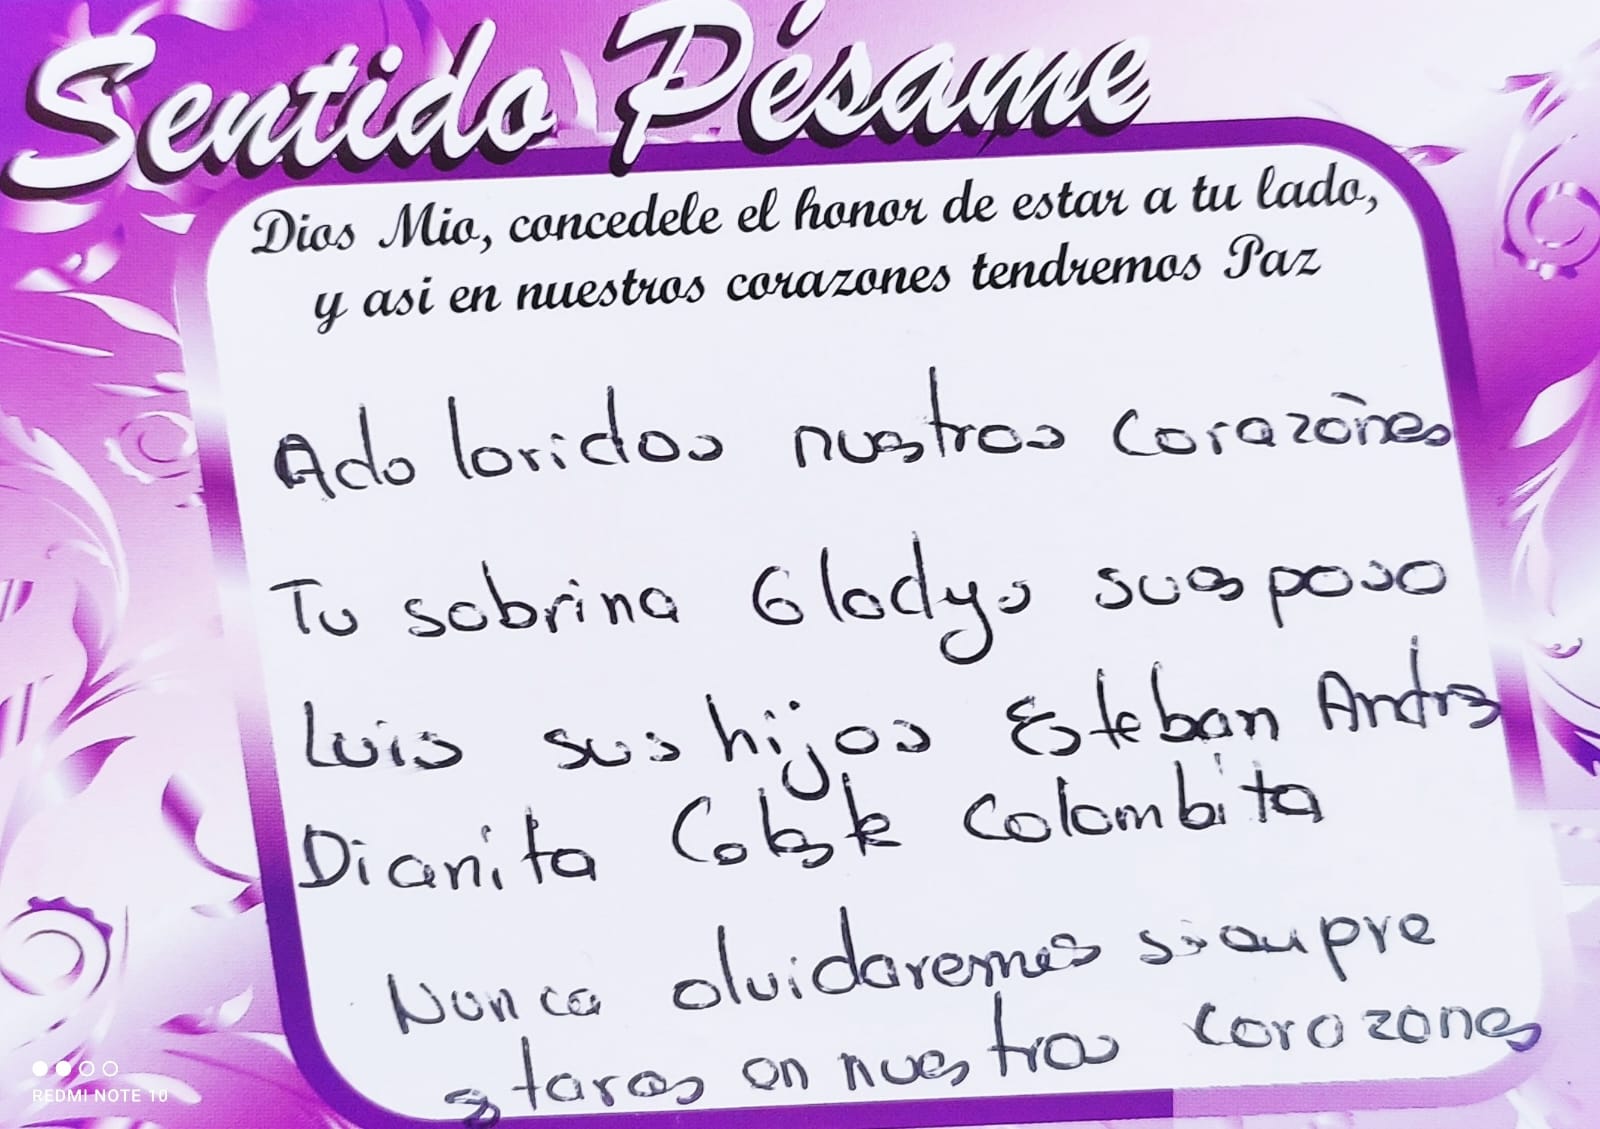 Sentido Pésame
Dios Mio, concedele el honor de estar a tu lado,
y asi en nuestros corazones tendremos Paz
Ado loridos nuestros corazones
Tu sobrina Gladys su esposo
Luis sus hijos Esteban Andres
Dianita Celeste Colombita
Nunca olvidaremos siempre
estaras en nuestros corazones
REDMI NOTE 10